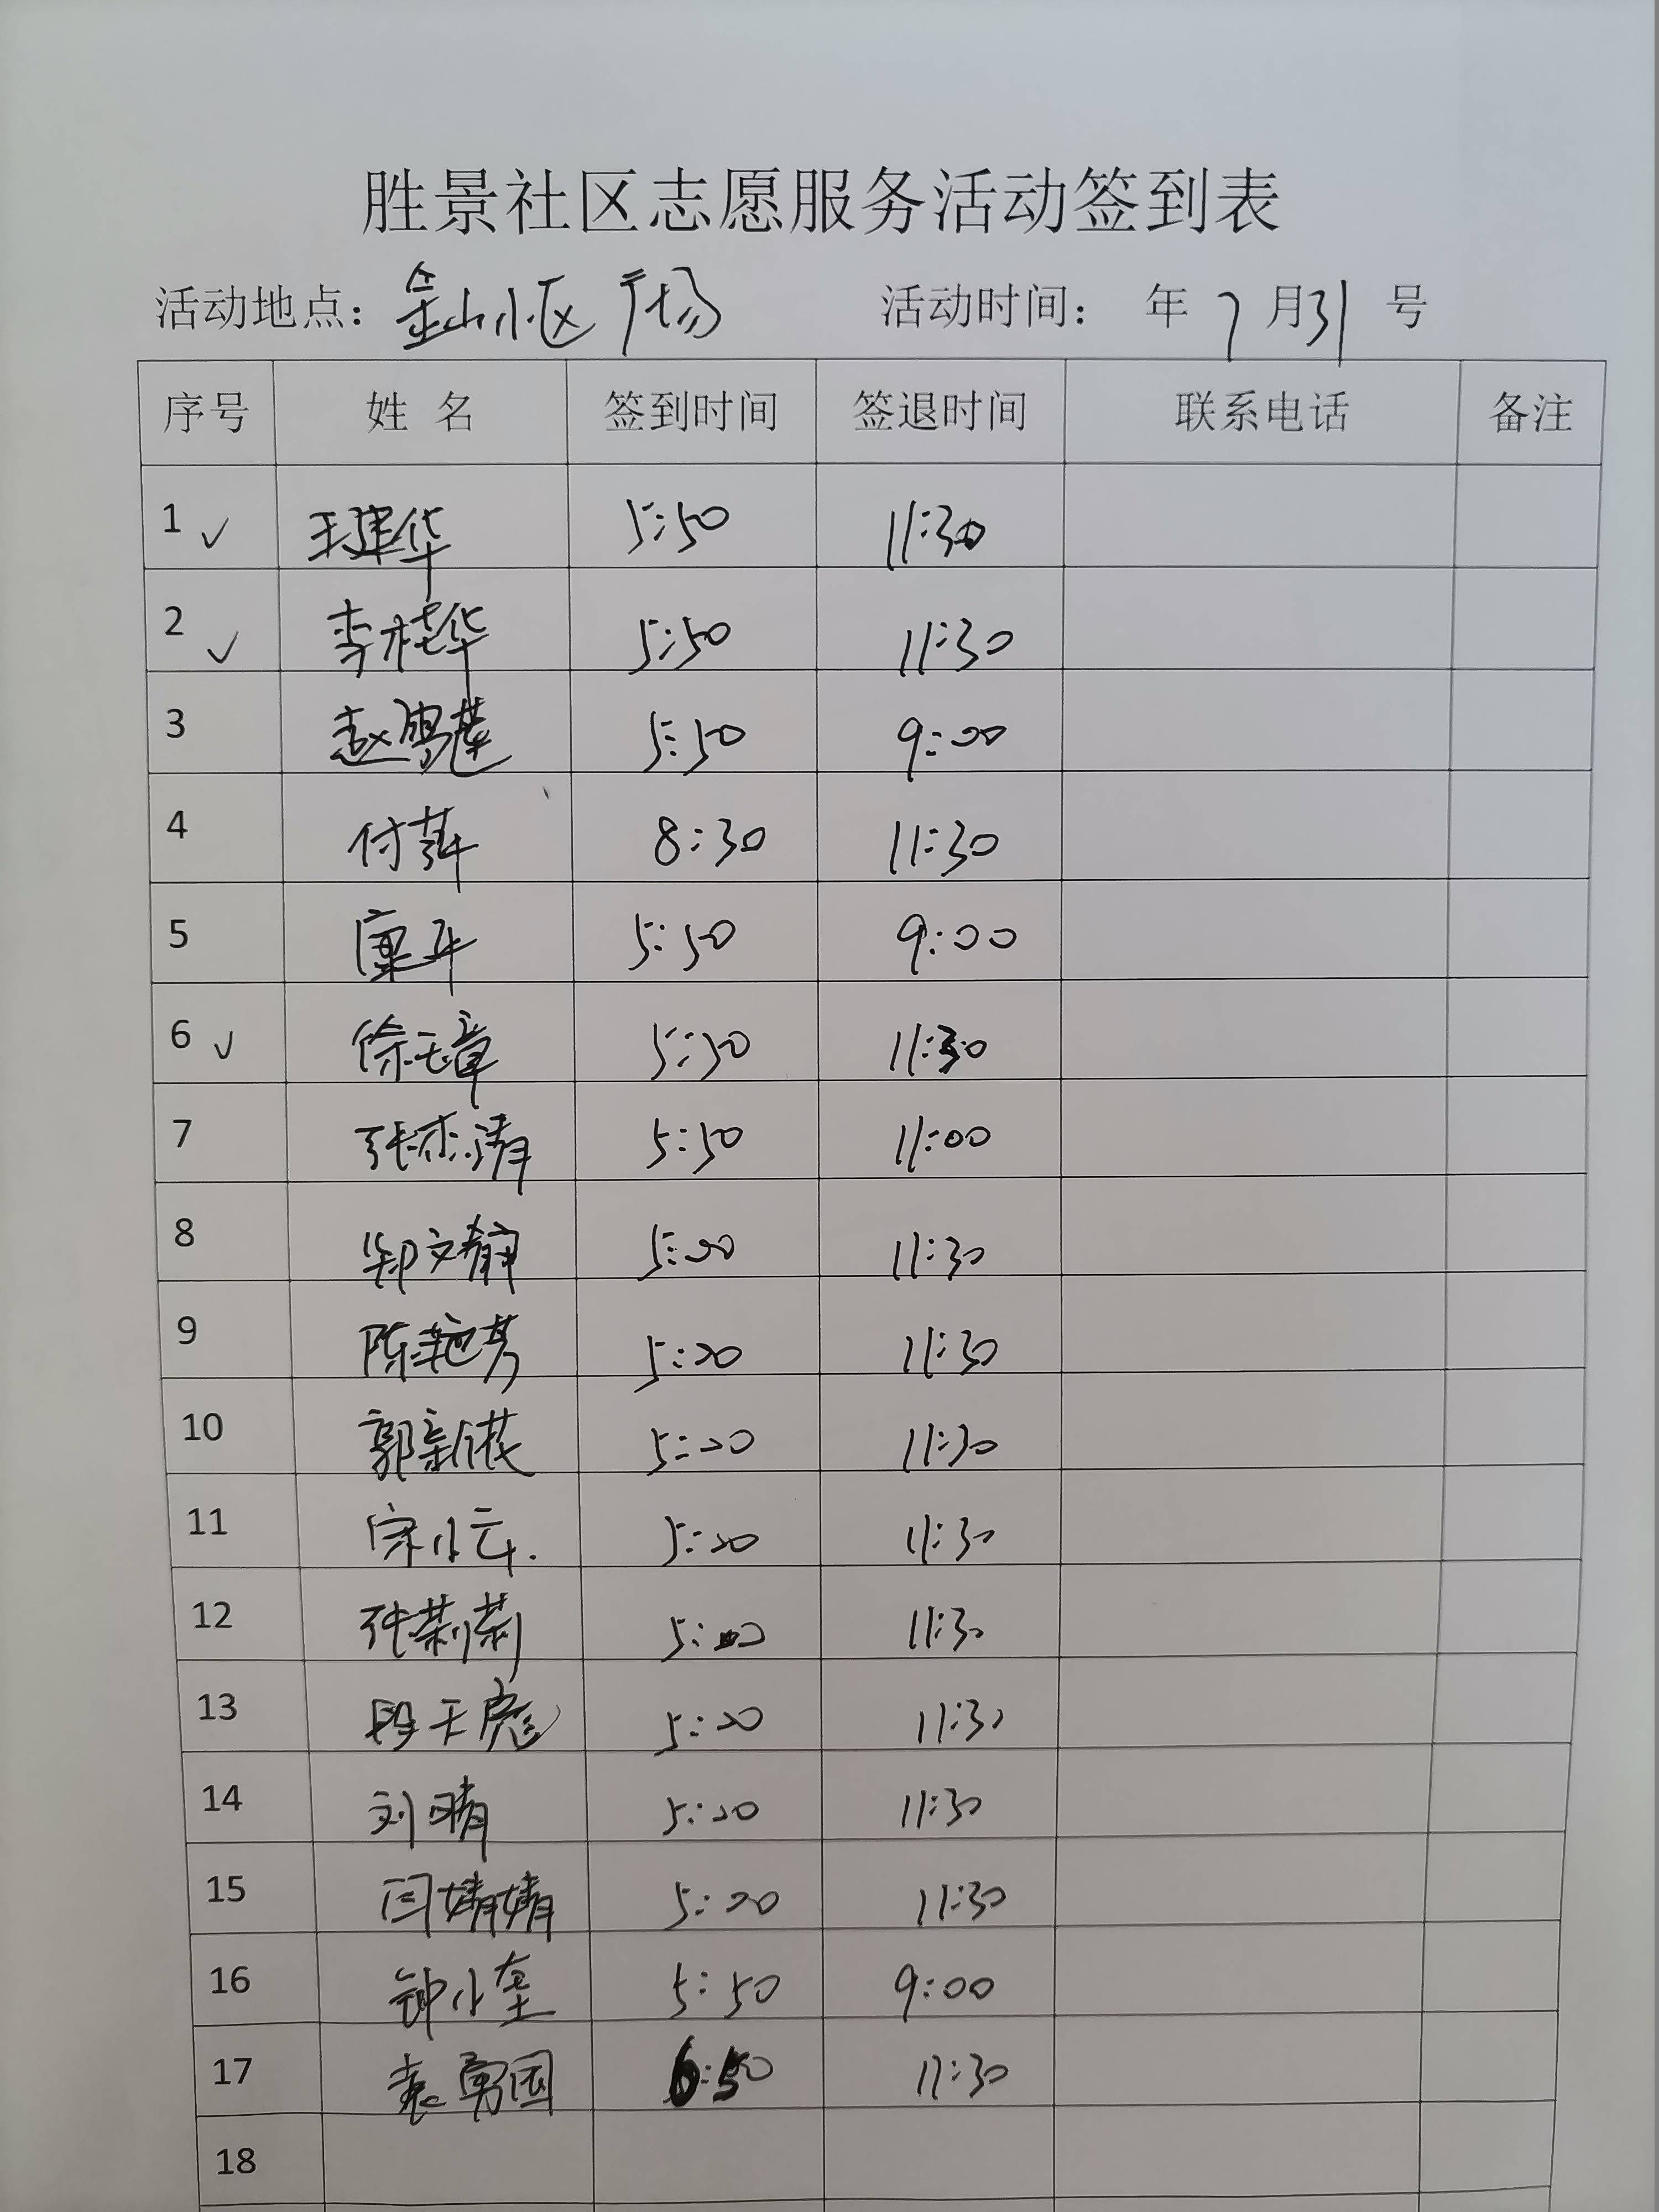 胜景社区志愿服务活动签到表
活动地点：金山小区广场 活动时间： 年 7 月 31 号
序号 姓 名 签到时间 签退时间 联系电话 备注
1 ✓ 王建华 5:50 11:30
2 ✓ 李桂华 5:50 11:30
3 赵雪莲 5:50 9:00
4 付萍 8:30 11:30
5 康平 5:50 9:00
6 ✓ 徐玉章 5:50 11:30
7 张杰清 5:50 11:00
8 郑文静 5:20 11:30
9 陈艳芳 5:20 11:30
10 郭新茂 5:20 11:30
11 宋小云. 5:20 11:30
12 张莉莉 5:20 11:30
13 段天彪 5:20 11:30
14 刘晴 5:20 11:30
15 闫婧婧 5:20 11:30
16 钟小奎 5:50 9:00
17 袁勇国 6:50 11:30
18